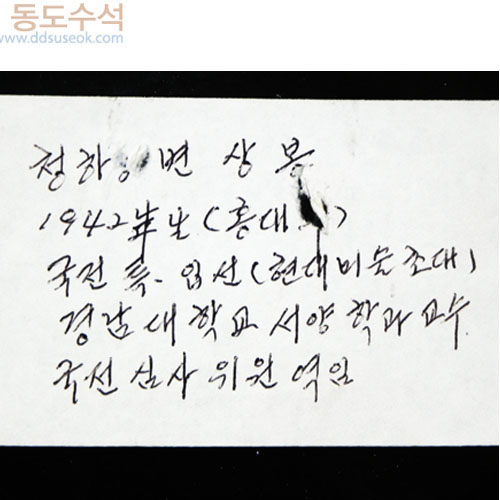 동도수석
www.ddsuseok.com
청하 변 상 봉
1942年 生 (홍대 )
국전 특. 입선 (현대미술초대)
경남대학교 서양학과 교수
국선 심사 위원 역임